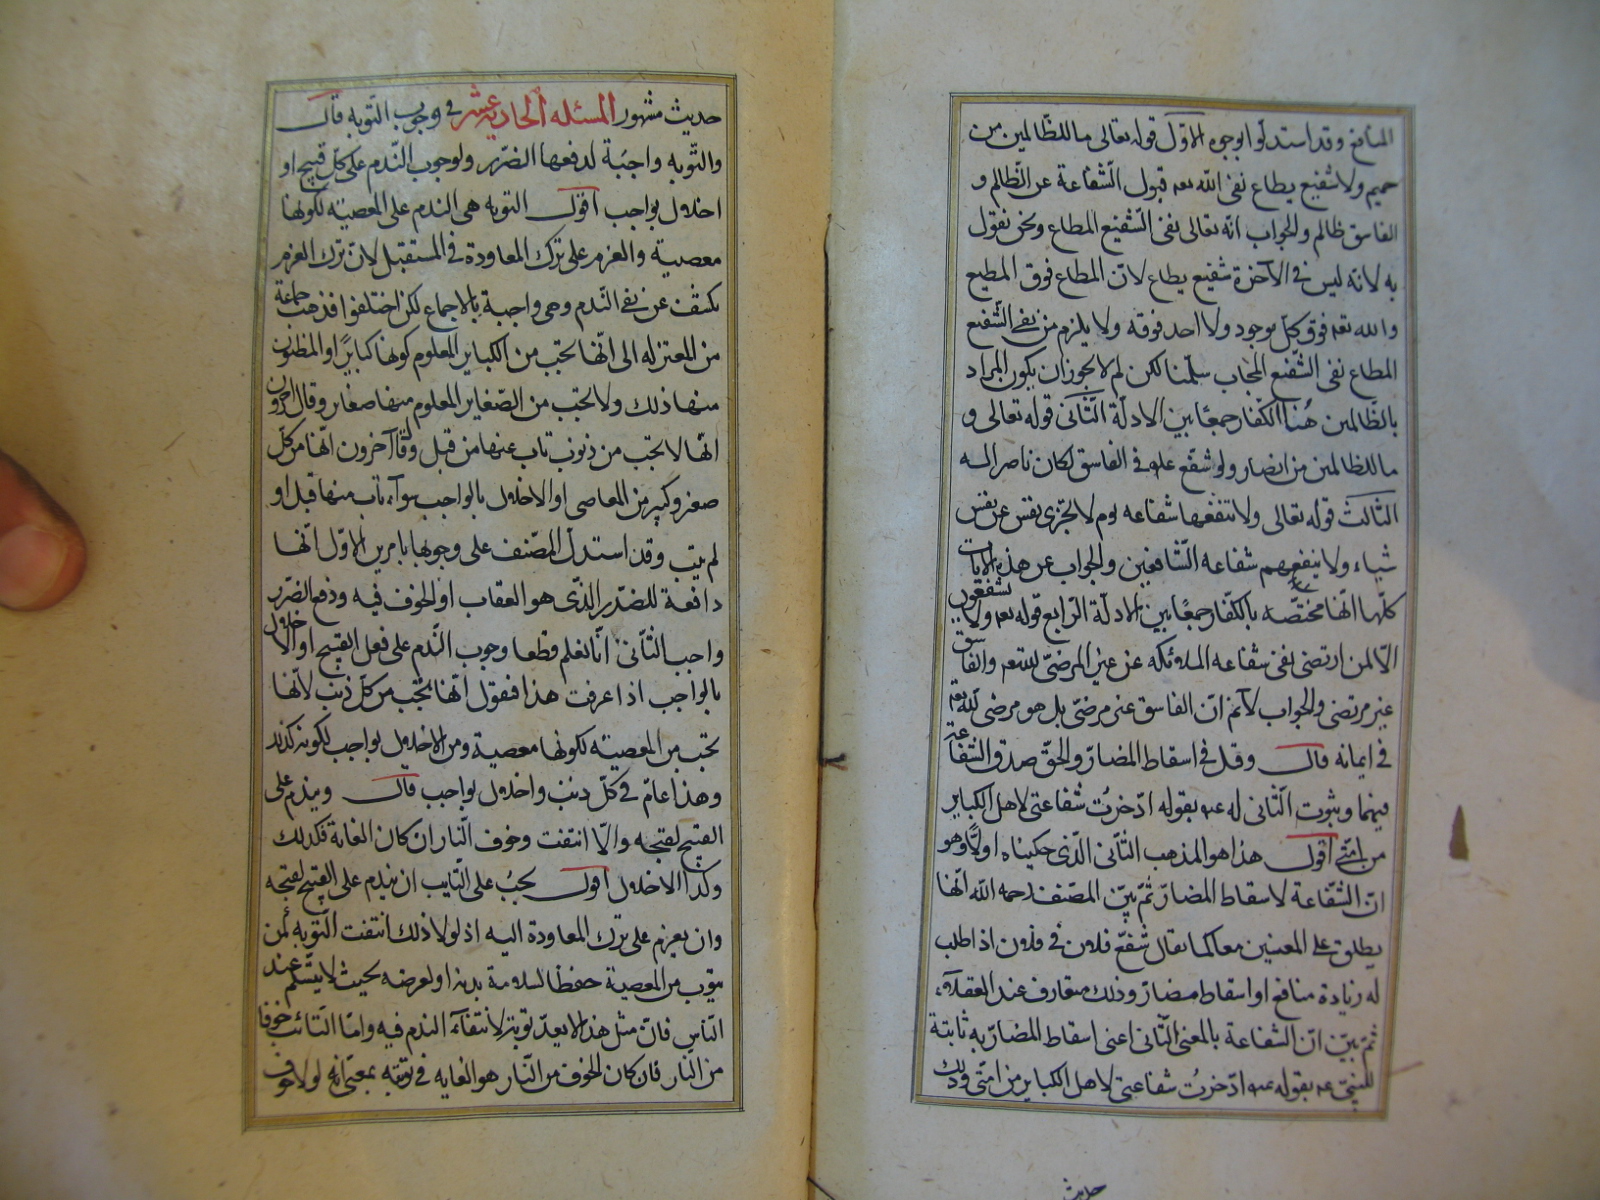 المنافع وقد استدلوا بوجوه الاوّل قوله تعالى ما للظّالمين من
حميم ولا شفيع يطاع نفى الله تعه قبول الشّفاعة عن الظّالم و
الفاسق ظالم والجواب انّه تعالى نفى الشّفيع المطاع ونحن نقول
به لانّه ليس فى الآخرة شفيع يطاع لانّ المطاع فوق المطيع
والله تعه فوق كلّ موجود ولا احد فوقه ولا يلزم من نفى الشّفيع
المطاع نفى الشّفيع المجاب سلّمنا لكن لم لا يجوز ان يكون المراد
بالظّالمين هُنا الكفّار جمعًا بين الادلّة الثّانى قوله تعالى و
ما للظالمين من انصار ولو شفّع عله فى الفاسق لكان ناصرا له
الثّالث قوله تعالى ولا تنفعها شفاعه يوم لا تجزى نفس عن نفس
شياء ولا ينفعهم شفاعه الشّافعين والجواب عن هذه الآيات
كلّها انّها مختصّه بالكفّار جمعًا بين الادلّة الرّابع قوله تعه ولا يشفعون
الّا لمن ارتضى نفى شفاعه الملائكه عن غير المرضىّ لله تعه والفاسق
غير مرتضى والجواب لا نم انّ الفاسق غير مرضىّ بل هو مرضى لله تعه
فى ايمانه قال وقيل فى اسقاط المضارّ والحقّ صدق الشّفاعة
فيهما وثبوت الثّانى له عه بقوله ادّخرْت شفاعتى لاهل الكباير
من امّتى اقول هذا هو المذهب الثّانى الّذى حكيناه اولًا وهو
انّ الشّفاعة لاسقاط المضارّ ثمّ بيّن المصّنف رحمه الله انّها
يطلق على المعنين معا كما يقال شفّع فلان فى فلان اذا طلب
له زيادة منافع او اسقاط مضارّ وذلك متعارف عند العقلاء
ثمّ بيّن انّ الشّفاعة بالمعنى الثّانى اعنى اسقاط المضارّ به ثابتة
للنبىّ عه بقوله عه ادّخرْت شفاعتى لاهل الكباير من امّتى وذلك
حديث
حديث مشهور المسئله الحادية عشر فى وجوب التّوبه قال
والتّوبه واجبَة لدفعها الضّرر ولوجوب النّدم على كلّ قبيح او
اخلال بواجب اقول التوبه هى الندم على المعصيّه لكونها
معصيّة والعزم على ترك المعاودة فى المستقبل لانّ ترك العزم
يكشف عن نفى النّدم وهى واجبة بالاجماع لكن اختلفوا فذهب جماعة
من المعتزله الى انّها تجب من الكباير المعلوم كونها كبايرً او المظنون
منها ذلك ولا تجب من الصّغاير المعلوم منها صغاير وقال آخرون
انّها لا تجب من ذنوب تاب عنها من قبل وقال آخرون انّها من كلّ
صغير وكبير من المعاصى او الاخلال بالواجب سوآء تاب منها قبل او
لم يتب وقد استدلّ المصّنف على وجوبها بامرين الاوّل انّها
دافعة للضرر الذّى هو العقاب او الخوف فيه ودفع الضّرر
واجب الثّانى انّا نعلم قطعا وجوب النّدم على فعل القبيح او الاخلال
بالواجب اذا عرفت هذا فنقول انّها تجب من كلّ ذنب لانّها
تجب من المعصيّه لكونها معصية ومن الاخلال بواجب لكونه كذلك
وهذا عامّ فى كلّ ذنب واخلال بواجب قال ويندم على
القبيح لقبحه والّا انتفت وخوف النّار ان كان الغاية فكذلك
وكذا الاخلال اقول يجبُ على التّايب ان يندم على القبيح لقبحه
وان يعزم على ترك المعاودة اليه اذ لولا ذلك انتفت التّوبه كمن
يتوب من المعصية حفظًا لسلامة بدنه او لعرضه بحيث لا يتثلّم عند
النّاس فانّ مثل هذا لا يعدّ توبة لانتفآء الندم فيه وامّا التّائب خوفا
من النّار فان كان الخوف من النّار هو الغايه فى توبته بمعنى انه لولا خوف